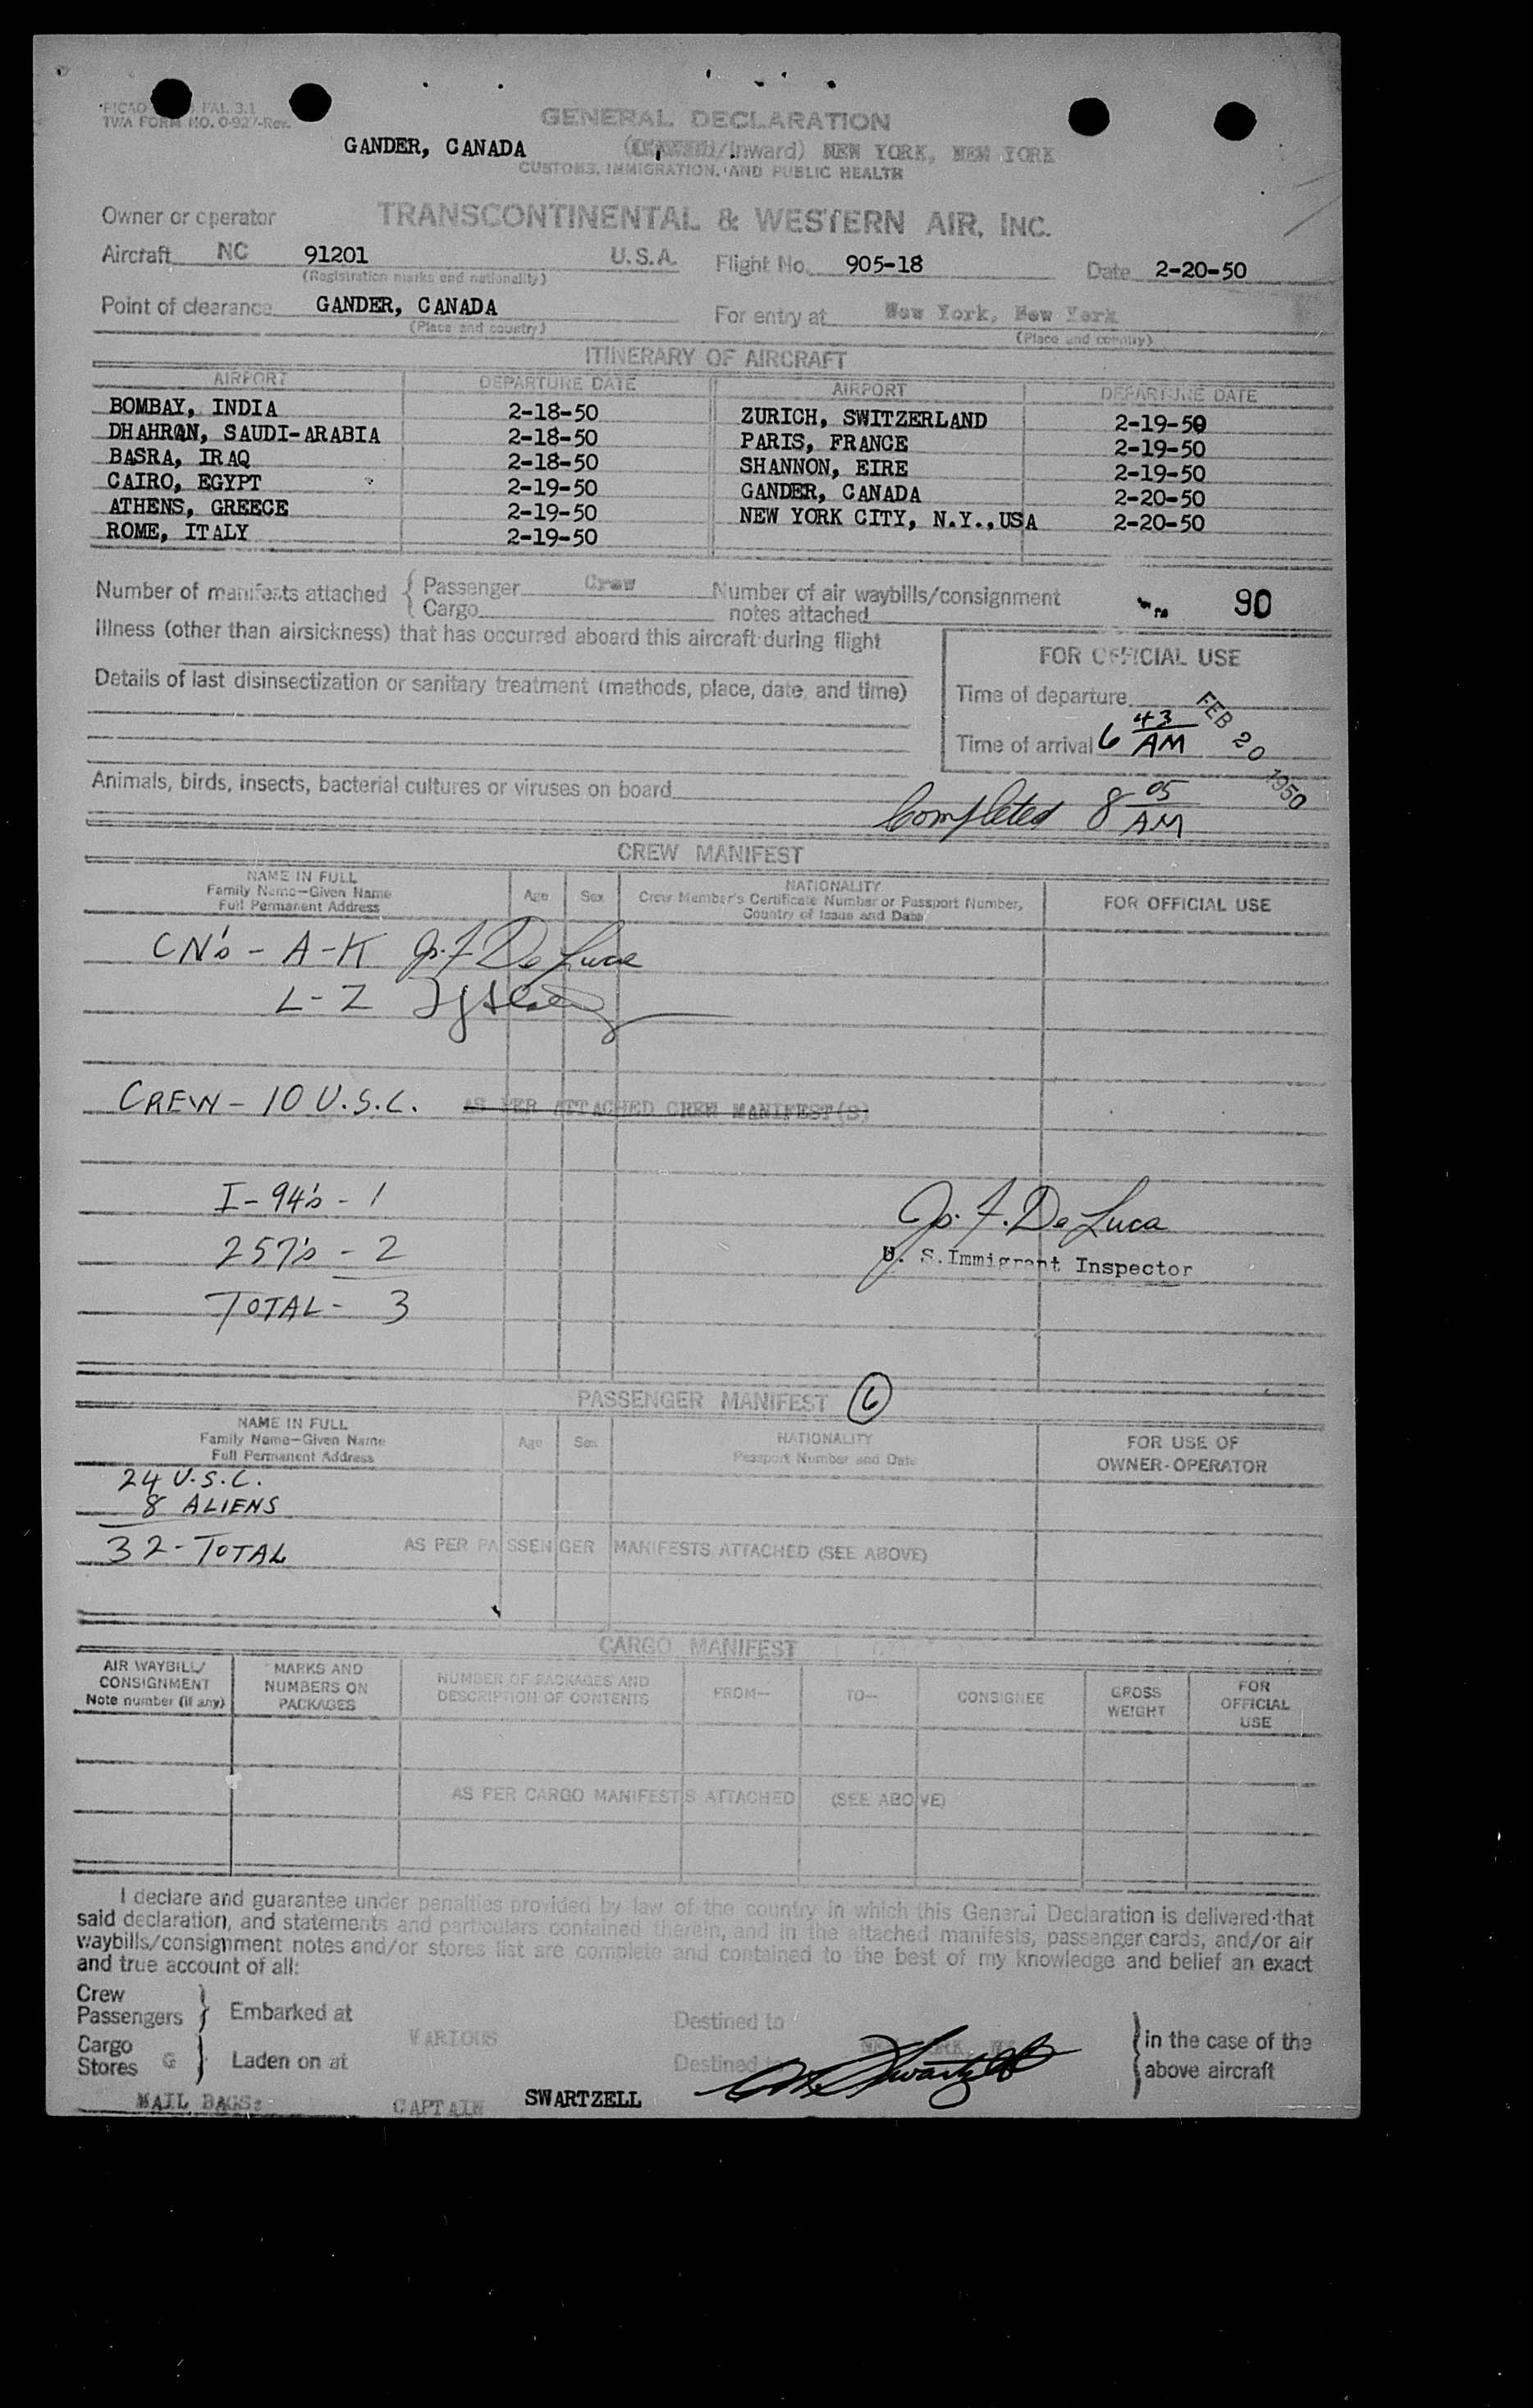 PICAO FAL 3.1
TWA FORM NO. O-927-Rev.
GENERAL DECLARATION
GANDER, CANADA (/Inward) NEW YORK, NEW YORK
CUSTOMS, IMMIGRATION, AND PUBLIC HEALTH
Owner or operator TRANSCONTINENTAL & WESTERN AIR, INC.
Aircraft NC 91201 U.S.A. Flight No. 905-18 Date 2-20-50
(Registration marks and nationality)
Point of clearance GANDER, CANADA For entry at New York, New York
(Place and country) (Place and country)
ITINERARY OF AIRCRAFT
AIRPORT DEPARTURE DATE AIRPORT DEPARTURE DATE
BOMBAY, INDIA 2-18-50 ZURICH, SWITZERLAND 2-19-50
DHAHRAN, SAUDI-ARABIA 2-18-50 PARIS, FRANCE 2-19-50
BASRA, IRAQ 2-18-50 SHANNON, EIRE 2-19-50
CAIRO, EGYPT 2-19-50 GANDER, CANADA 2-20-50
ATHENS, GREECE 2-19-50 NEW YORK CITY, N.Y.,USA 2-20-50
ROME, ITALY 2-19-50
Number of manifests attached { Passenger Crew Number of air waybills/consignment
Cargo notes attached 90
Illness (other than airsickness) that has occurred aboard this aircraft during flight
FOR OFFICIAL USE
Details of last disinsectization or sanitary treatment (methods, place, date, and time)
Time of departure
Time of arrival 6 43 AM FEB 20 1950
Animals, birds, insects, bacterial cultures or viruses on board
Completed 8 05 AM
CREW MANIFEST
NAME IN FULL
Family Name—Given Name
Full Permanent Address
Age Sex
NATIONALITY
Crew Member's Certificate Number or Passport Number,
Country of Issue and Date
FOR OFFICIAL USE
CN's - A-K Js. F. De Luca
L-Z
CREW - 10 U.S.C. AS PER ATTACHED CREW MANIFEST(S)
I-94's - 1
257's - 2
TOTAL - 3
Js. F. De Luca
U. S. Immigrant Inspector
PASSENGER MANIFEST 6
NAME IN FULL
Family Name—Given Name
Full Permanent Address
Age Sex
NATIONALITY
Passport Number and Date
FOR USE OF
OWNER-OPERATOR
24 U.S.C.
8 ALIENS
32 - TOTAL AS PER PASSENGER MANIFESTS ATTACHED (SEE ABOVE)
CARGO MANIFEST
AIR WAYBILL/
CONSIGNMENT
Note number (if any)
MARKS AND
NUMBERS ON
PACKAGES
NUMBER OF PACKAGES AND
DESCRIPTION OF CONTENTS
FROM— TO— CONSIGNEE
GROSS
WEIGHT
FOR
OFFICIAL
USE
AS PER CARGO MANIFESTS ATTACHED (SEE ABOVE)
I declare and guarantee under penalties provided by law of the country in which this General Declaration is delivered that
said declaration, and statements and particulars contained therein, and in the attached manifests, passenger cards, and/or air
waybills/consignment notes and/or stores list are complete and contained to the best of my knowledge and belief an exact
and true account of all:
Crew
Passengers } Embarked at VARIOUS Destined to
Cargo
Stores G } Laden on at Destined to
in the case of the
above aircraft
MAIL BAGS: CAPTAIN SWARTZELL